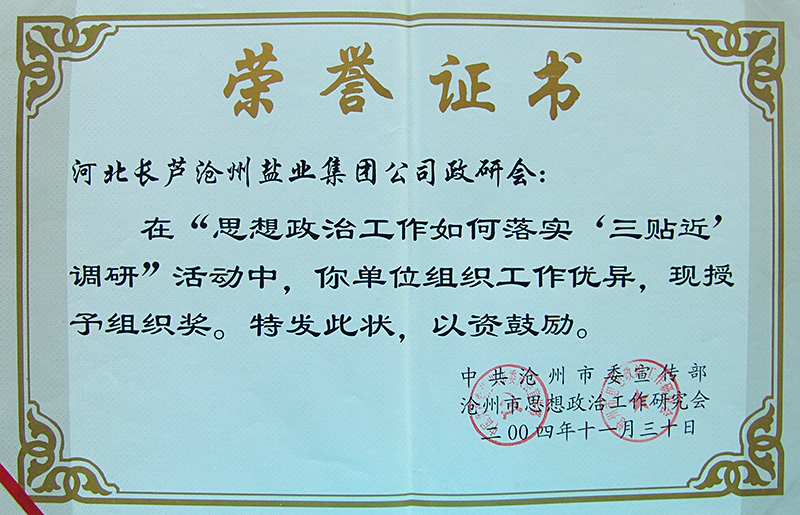 荣誉证书
河北长芦沧州盐业集团公司政研会:
在“思想政治工作如何落实‘三贴近’
调研”活动中，你单位组织工作优异，现授
予组织奖。特发此状，以资鼓励。
中共沧州市委宣传部
沧州市思想政治工作研究会
二00四年十一月三十日